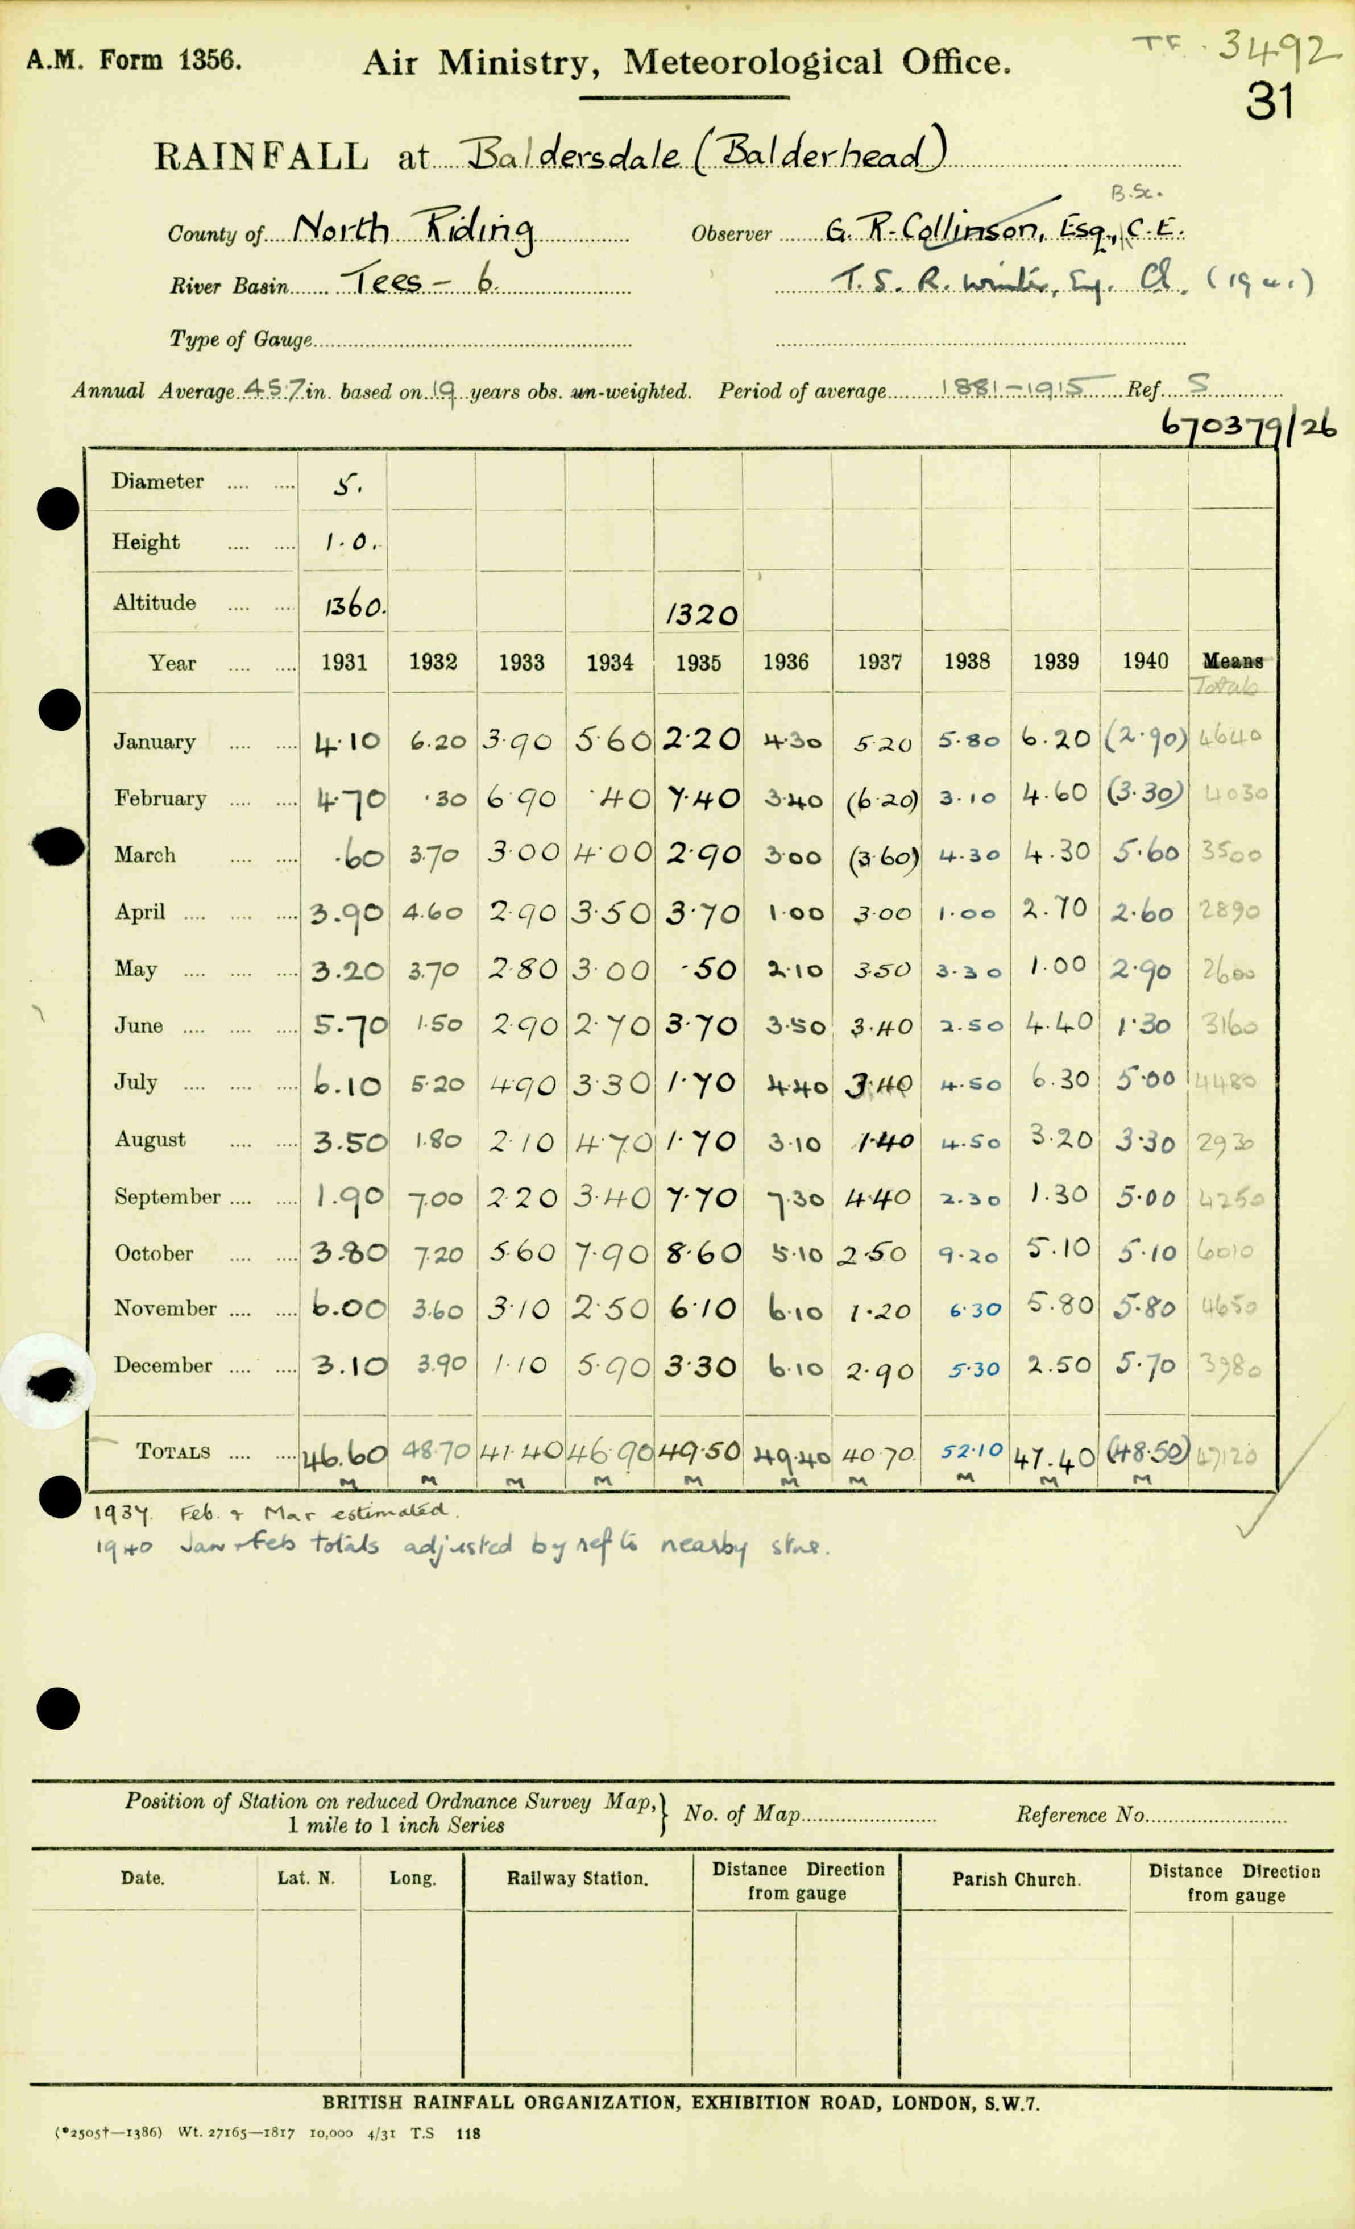 A.M. Form 1356. Air Ministry, Meteorological Office. TF. 3492
31
RAINFALL at Baldersdale (Balderhead)
B.Sc.
County of North Riding Observer G. R. Collinson, Esq., C.E.
River Basin Tees - 6. T. S. R. Winter, Esq. (1941)
Type of Gauge
Annual Average 45.7 in. based on 19 years obs. un-weighted. Period of average 1881-1915 Ref. S
670379/26
Diameter .... .... 5.
Height .... .... 1.0.
Altitude .... .... 1360. 1320
Year .... .... 1931 1932 1933 1934 1935 1936 1937 1938 1939 1940 Means
Totals
January .... .... 4.10 6.20 3.90 5.60 2.20 4.30 5.20 5.80 6.20 (2.90) 4640
February .... .... 4.70 .30 6.90 .40 7.40 3.40 (6.20) 3.10 4.60 (3.30) 4030
March .... .... .60 3.70 3.00 4.00 2.90 3.00 (3.60) 4.30 4.30 5.60 3500
April .... .... .... 3.90 4.60 2.90 3.50 3.70 1.00 3.00 1.00 2.70 2.60 2890
May .... .... .... 3.20 3.70 2.80 3.00 .50 2.10 3.50 3.30 1.00 2.90 2600
June .... .... .... 5.70 1.50 2.90 2.70 3.70 3.50 3.40 2.50 4.40 1.30 3160
July .... .... .... 6.10 5.20 4.90 3.30 1.70 4.40 3.40 4.50 6.30 5.00 4480
August .... .... 3.50 1.80 2.10 4.70 1.70 3.10 1.40 4.50 3.20 3.30 2930
September .... .... 1.90 7.00 2.20 3.40 7.70 7.30 4.40 2.30 1.30 5.00 4250
October .... .... 3.80 7.20 5.60 7.90 8.60 5.10 2.50 9.20 5.10 5.10 6010
November .... .... 6.00 3.60 3.10 2.50 6.10 6.10 1.20 6.30 5.80 5.80 4650
December .... .... 3.10 3.90 1.10 5.90 3.30 6.10 2.90 5.30 2.50 5.70 3980
TOTALS .... .... 46.60 48.70 41.40 46.90 49.50 49.40 40.70 52.10 47.40 (48.50) 47120
M M M M M M M M M M
1937. Feb. & Mar estimated.
1940 Jan & Feb totals adjusted by ref to nearby stns.
Position of Station on reduced Ordnance Survey Map, } No. of Map Reference No.
1 mile to 1 inch Series
Date. Lat. N. Long. Railway Station. Distance Direction from gauge Parish Church. Distance Direction from gauge
BRITISH RAINFALL ORGANIZATION, EXHIBITION ROAD, LONDON, S.W.7.
(*2505†—1386) Wt. 27165—1817 10,000 4/31 T.S 118